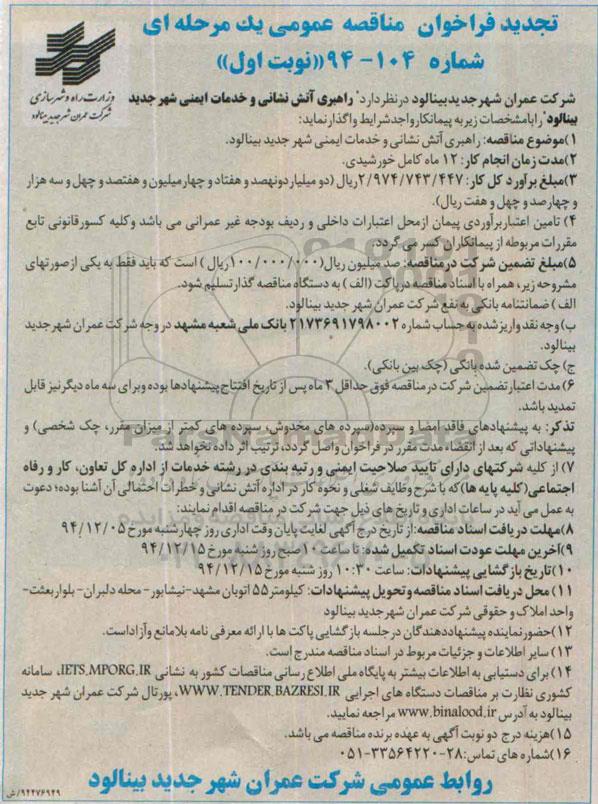 تجدید فراخوان مناقصه عمومی یک مرحله ای
شماره ۱۰۴- ۹۴ ((نوبت اول))
وزارت راه و شهرسازی
شرکت عمران شهر جدید بینالود
شرکت عمران شهر جدید بینالود در نظر دارد" راهبری آتش نشانی و خدمات ایمنی شهر جدید
بینالود" را با مشخصات زیر به پیمانکار واجد شرایط واگذار نماید:
۱)موضوع مناقصه: راهبری آتش نشانی و خدمات ایمنی شهر جدید بینالود.
۲)مدت زمان انجام کار: ۱۲ ماه کامل خورشیدی.
۳)مبلغ برآورد کل کار: ۲/۹۷۴/۷۴۳/۴۴۷ریال (دو میلیارد و نهصد و هفتاد و چهار میلیون و هفتصد و چهل و سه هزار
و چهارصد و چهل و هفت ریال).
۴) تامین اعتبار برآوردی پیمان از محل اعتبارات داخلی و ردیف بودجه غیر عمرانی می باشد و کلیه کسور قانونی تابع
مقررات مربوطه از پیمانکاران کسر می گردد.
۵)مبلغ تضمین شرکت در مناقصه: صد میلیون ریال(۱۰۰/۰۰۰/۰۰۰ریال ) است که باید فقط به یکی از صورتهای
مشروحه زیر، همراه با اسناد مناقصه در پاکت (الف ) به دستگاه مناقصه گذار تسلیم شود.
الف ) ضمانتنامه بانکی به نفع شرکت عمران شهر جدید بینالود.
ب) وجه نقد واریز شده به حساب شماره ۲۱۷۳۶۹۱۷۹۸۰۰۲ بانک ملی شعبه مشهد در وجه شرکت عمران شهر جدید
بینالود.
ج) چک تضمین شده بانکی (چک بین بانکی).
۶) مدت اعتبار تضمین شرکت در مناقصه فوق حداقل ۳ ماه پس از تاریخ افتتاح پیشنهادها بوده و برای سه ماه دیگر نیز قابل
تمدید باشد.
تذکر: به پیشنهادهای فاقد امضا و سپرده(سپرده های مخدوش، سپرده های کمتر از میزان مقرر، چک شخصی) و
پیشنهاداتی که بعد از انقضاء مدت مقرر در فراخوان واصل گردد، ترتیب اثر داده نخواهد شد.
۷) از کلیه شرکتهای دارای تایید صلاحیت ایمنی و رتبه بندی در رشته خدمات از اداره کل تعاون، کار و رفاه
اجتماعی(کلیه پایه ها)که با شرح وظایف شغلی و نحوه کار در اداره آتش نشانی و خطرات احتمالی آن آشنا بوده؛ دعوت
به عمل می آید در ساعات اداری و تاریخ های ذیل جهت شرکت در مناقصه اقدام نمایند:
۸)مهلت دریافت اسناد مناقصه:از تاریخ درج آگهی لغایت پایان وقت اداری روز چهارشنبه مورخ ۹۴/۱۲/۰۵
۹)آخرین مهلت عودت اسناد تکمیل شده: تا ساعت ۱۰ صبح روز شنبه مورخ ۹۴/۱۲/۱۵
۱۰)تاریخ بازگشایی پیشنهادات: ساعت ۱۰:۳۰ روز شنبه مورخ ۹۴/۱۲/۱۵
۱۱) محل دریافت اسناد مناقصه و تحویل پیشنهادات: کیلومتر ۵۵ اتوبان مشهد-نیشابور- محله دلبران- بلوار بعثت-
واحد املاک و حقوقی شرکت عمران شهر جدید بینالود
۱۲)حضور نماینده پیشنهاددهندگان در جلسه بازگشایی پاکت ها با ارائه معرفی نامه بلامانع و آزاد است.
۱۳) سایر اطلاعات و جزئیات مربوط در اسناد مناقصه مندرج است.
۱۴) برای دستیابی به اطلاعات بیشتر به پایگاه ملی اطلاع رسانی مناقصات کشور به نشانی IETS.MPORG.IR، سامانه
کشوری نظارت بر مناقصات دستگاه های اجرایی WWW.TENDER.BAZRESI.IR، پورتال شرکت عمران شهر جدید
بینالود به آدرس www.binalood.ir مراجعه نمایید.
۱۵)هزینه درج دو نوبت آگهی به عهده برنده مناقصه می باشد.
۱۶)شماره های تماس: ۲۸-۳۳۵۶۴۲۲۰-۰۵۱
روابط عمومی شرکت عمران شهر جدید بینالود
۹۴۴۷۶۹۴۹/ش